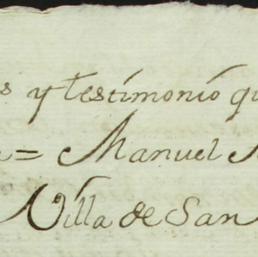 s y testimonio qu
= Manuel
Villa de San